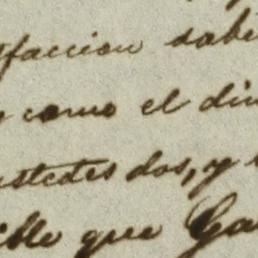 facción sabi
como el din
ustedes dos, y
ible que Ga